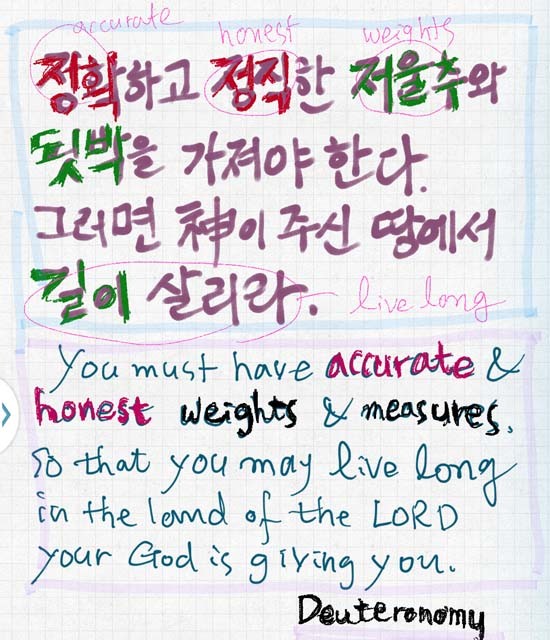 accurate honest weights
정확하고 정직한 저울추와
됫박을 가져야 한다.
그러면 神이 주신 땅에서
길이 살리라. live long
You must have accurate &
honest weights & measures,
so that you may live long
in the land of the LORD
your God is giving you.
Deuteronomy